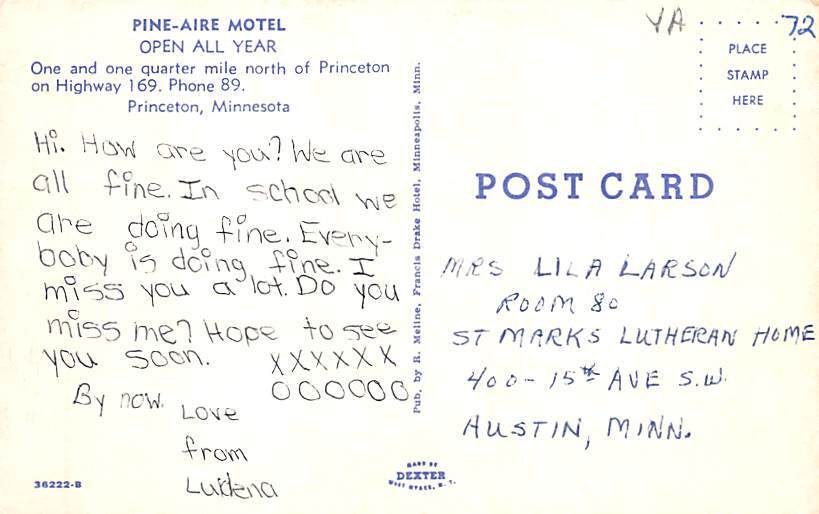 PINE-AIRE MOTEL
OPEN ALL YEAR
One and one quarter mile north of Princeton
on Highway 169. Phone 89.
Princeton, Minnesota
Hi. How are you? We are
all fine. In school we
are doing fine. Every-
boby is doing fine. I
miss you a lot. Do you
miss me? Hope to see
you soon. XXXXXX
OOOOOO
By now.
Love
from
36222-B
Pub. by R. Meline, Francis Drake Hotel, Minneapolis, Minn.
MADE BY
DEXTER
WEST NYACK, N.Y.
YA
72
PLACE
STAMP
HERE
POST CARD
MRS LILA LARSON
ROOM 80
ST MARKS LUTHERAN HOME
400-15th AVE S.W.
AUSTIN, MINN.